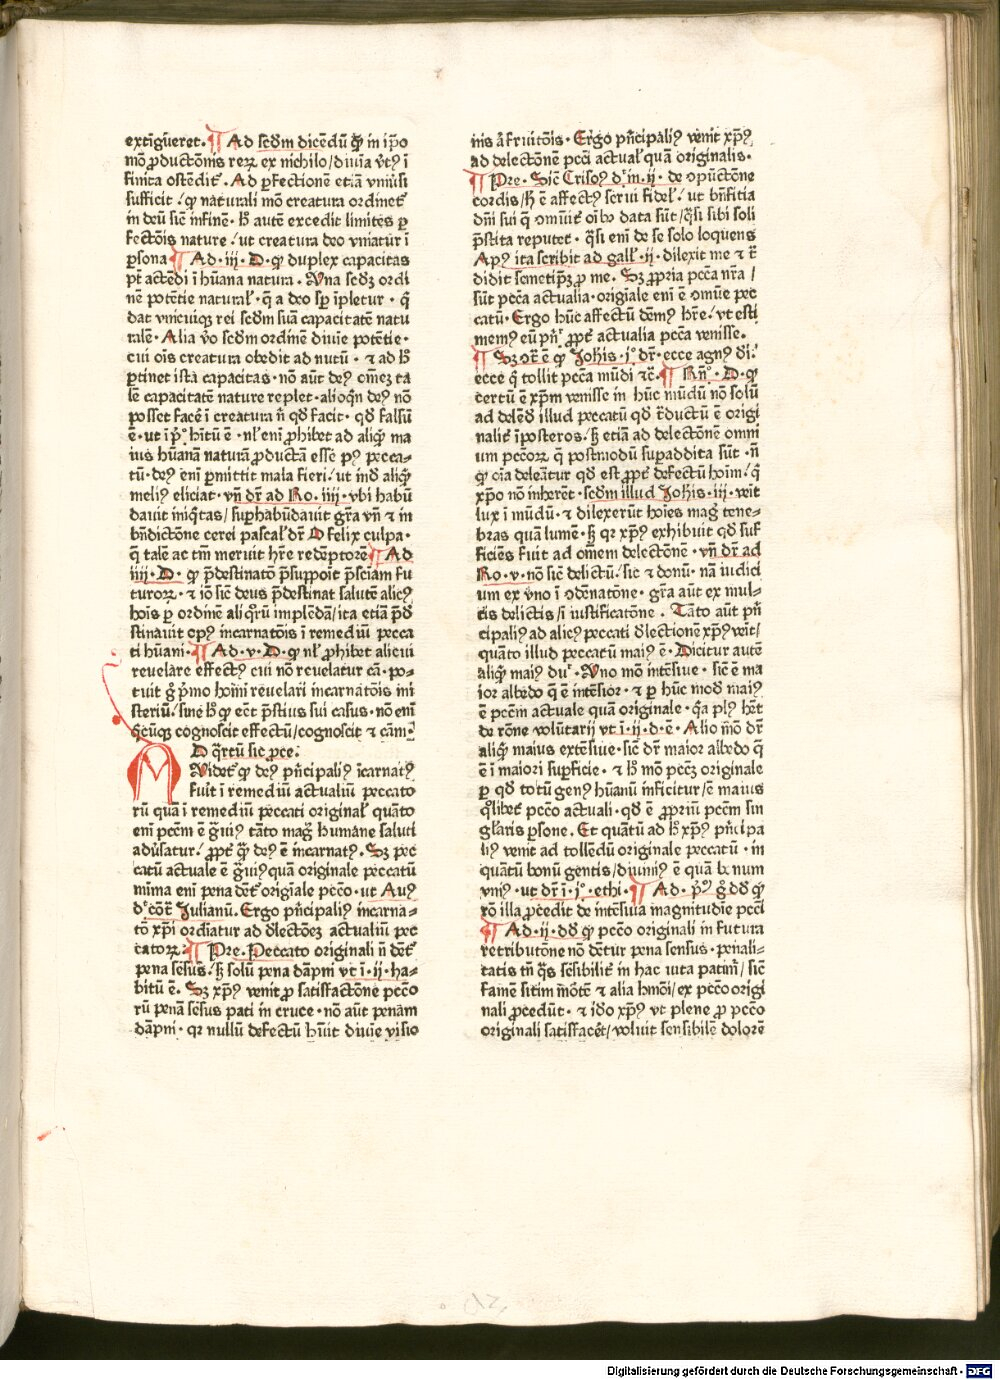 extīgūeret. ¶ Ad sedm dicēdū ꝙ in ip̄o
mō ꝓductōnis reꝝ ex nichilo/diuīa v̄tꝰ ī
finita ostēdit᷑. Ad ꝑfectionē etiā vniūsi
sufficit/ꝙ naturali mō creatura ordinet᷑
in deū sic̄ in finē. h̄ autē excedit limites ꝑ
fectōis nature/ut creatura deo vniatur ī
ꝑsona ¶ Ad.iii.D.ꝙ duplex capacitas
pt̄ actēdi ī hūana natura. Vna sedꝫ ordi
nē potētie natural̓.q̄ a deo sꝑ īpletur.q̄
dat vnicuiqꝫ rei sedm suā capacitatē natu
ralē. Alia v̄o sedm ordinē diuīe potētie.
cui oīs creatura obedit ad nutū.⁊ ad h̄
ꝑtinet ista capacitas.nō aūt deꝰ om̄eꝫ ta
lē capacitatē nature replet.alioqn̄ deꝰ nō
posset facē ī creatura n̄ qd̄ facit.qd̄ falsū
ē.ut ī pͦ.hītū ē.nl̓ enī ꝓhibet ad aliqͥ ma
ius hūanā naturā ꝓductā esse pꝰ pecca⸗
tū.deꝰ enī ꝑmittit mala fieri/ut īnd̄ aliqͥ
meliꝰ eliciat.vn̄ dr̄ ad Ro.iiii.vbi habū
dauit iniqͥtas/suꝑhabūdauit gr̄a vn̄ ⁊ in
bn̄dictōne cerei pascal̓ dr̄ O felix culpa.
q̄ talē ac tm̄ meruit hr̄e redēptorē ¶ Ad
iiii.D.ꝙ p̄destinatō p̄suppoīt p̄sciam fu
turoꝝ.⁊ iō sic̄ deus p̄destinat salutē alicꝰ
hoīs ꝑ ordinē aliqͥrū implēdā/ita etiā p̄d̄
stinauit opꝰ incarnatōis ī remediū pecca
ti hūani. ¶ Ad.v.D.ꝙ nl̓ ꝓhibet alicui
reuelare effectꝰ cui nō reuelatur cā.po⸗
tuit g̊ p̄mo hoīni reuelari incarnatōis mi
steriū/sine h̄ ꝙ eēt p̄stius sui casus.nō enī
qͥcūqꝫ cognoscit effectū/cognoscit ⁊ cām.
AD qͣrtū sic ꝓce.
Videt᷑ ꝙ deꝰ pn̄cipaliꝰ īcarnatꝰ
fuit ī remediū actualiū peccato
rū quā ī remediū peccati original̓ quāto
enī pcc̄m ē gͣuiꝰ tāto magꝭ humāne saluti
adūsatur/ꝓpt̄ qͣ deꝰ ē incarnatꝰ. Sꝫ pec
catū actuale ē gͣuiꝰ quā originale peccatū
mīma enī pena det᷑ origīale pccō.ut Auꝰ
dͭ cōt̄ Julianū. Ergo pn̄cipaliꝰ incarna⸗
tō xp̄i ordiatur ad dlectōeꝫ actualiū pec
catoꝝ: ¶ Pre. Peccato originali n̄ det᷑
pena sēsus/ꝫ solū pena dāpni vt ī.ii.ha⸗
bitū ē. Sꝫ xp̄ꝰ venit ꝓ satisfactōne pccō
rū penā sēsus pati in cruce.nō aūt penam
dāpni.qꝛ nullū defectū hūit diuīe visio
nis a̓ fruitōis. Ergo pn̄cipaliꝰ venit xp̄ꝰ
ad delectōnē pcc̄i actual̓ quā originalis.
¶ Pre. Sic̄ Crisoꝰ dͭ in.ii.de ꝯpūctōne
cordis/h̄ ē affectꝰ serui fidel̓/ut bn̄fitia
dn̄i sui q̄ ꝯmūit᷑ oībꝰ data sūt/qͣsi sibi soli
p̄stita reputet.qͣsi enī de se solo loquens
Apꝰ ita scribit ad gall̓.ii.dilexit me ⁊ t̄
didit semetip̄ꝫ ꝓ me. Sꝫ ꝓpria pcc̄a nr̄a/
sūt pcc̄a actualia.origīale enī ē ꝯmūe pec
catū. Ergo hūc affectū dēmꝰ hr̄e/vt esti
memꝰ eū pn̄ꝭ ꝓpt̄ actualia pcc̄a venisse.
¶ Sꝫ ꝯt̄ ē ꝙ Johīs.jͦ.dr̄.ecce agnꝰ dī/
ecce q̄ tollit pcc̄a mūdi ⁊c̄. ¶ Rn̄ͦ.D.ꝙ
certū ē xp̄m venisse in hūc mūdū nō solū
ad delēd̄ illud peccatū qd̄ t̄ductū ē origi
nalit᷑ ī posteros/ꝫ etiā ad delectōnē omni
um pccōꝝ q̄ postmodū suꝑaddita sūt.n̄
ꝙ oīa deleātur qd̄ est ꝓpt̄ defectū hoīm/q̄
xp̄o nō inherēt.sedm illud Johīs.iii.veīt
lux ī mūdū.⁊ dilexerūt hoīes magꝭ tene⸗
bras quā lumē.ꝫ qꝛ xp̄ꝰ exhibuit qd̄ suf
ficiēs fuit ad om̄em delectōnē.vn̄ dr̄ ad
Ro.v.nō sic̄ delictū/sic ⁊ donū.nā iudici
um ex v̄no ī ꝯdēnatōne.gr̄a aūt ex mul⸗
tis delictis/ī iustificatōne. Tāto aūt pn̄
cipaliꝰ ad alicꝰ peccati dlectionē xp̄ꝰ veīt/
quāto illud peccatū maiꝰ ē. Dicitur autē
aliqͥ maiꝰ duͬ. Vno mō intēsiue.sic̄ ē ma
ior albedo q̄ ē intēsior.⁊ ꝑ hūc mod̄ maiꝰ
ē pcc̄m actuale quā originale.qͣ plꝰ h̄et
de rōne volūtarij vt ī.ii.d.ē. Alio mō dr̄
aliqͥ maius extēsiue.sic̄ dr̄ maior albedo q̄
ē ī maiori suꝑficie.⁊ h̄ mō pcc̄ꝫ originale
ꝑ qd̄ totū genꝰ hūanū inficitur/ē maius
qͦlibet᷑ pccō actuali.qd̄ ē ꝓpriū pcc̄m sin
gl̓aris ꝑsone. Et quātū ad h̄ xp̄ꝰ pn̄cipa
liꝰ venit ad tollēdū originale peccatū.in
quātū bonū gentis/diuiniꝰ ē quā bonum
vniꝰ.ut dr̄ ī.jͦ.ethi. ¶ Ad.pͦ g̊ dd̄ ꝙ
rō illa ꝓcedit de intēsiuia magnitudīe pcc̄i
¶ Ad.ii.dd̄ ꝙ pccō originali in futura
retributōne nō detur pena sensus.penali⸗
tatis tn̄ qͣs sēsibilit᷑ in hac uita patim̄/sic̄
famē sitim mōtē ⁊ alia hm̄oi/ex pccō origi
nali ꝓcedūt.⁊ iďo xp̄ꝰ vt plene ꝓ pccō
originali satisfacēt/voluit sensibilē dolorē
Digitalisierung gefördert durch die Deutsche Forschungsgemeinschaft - DFG